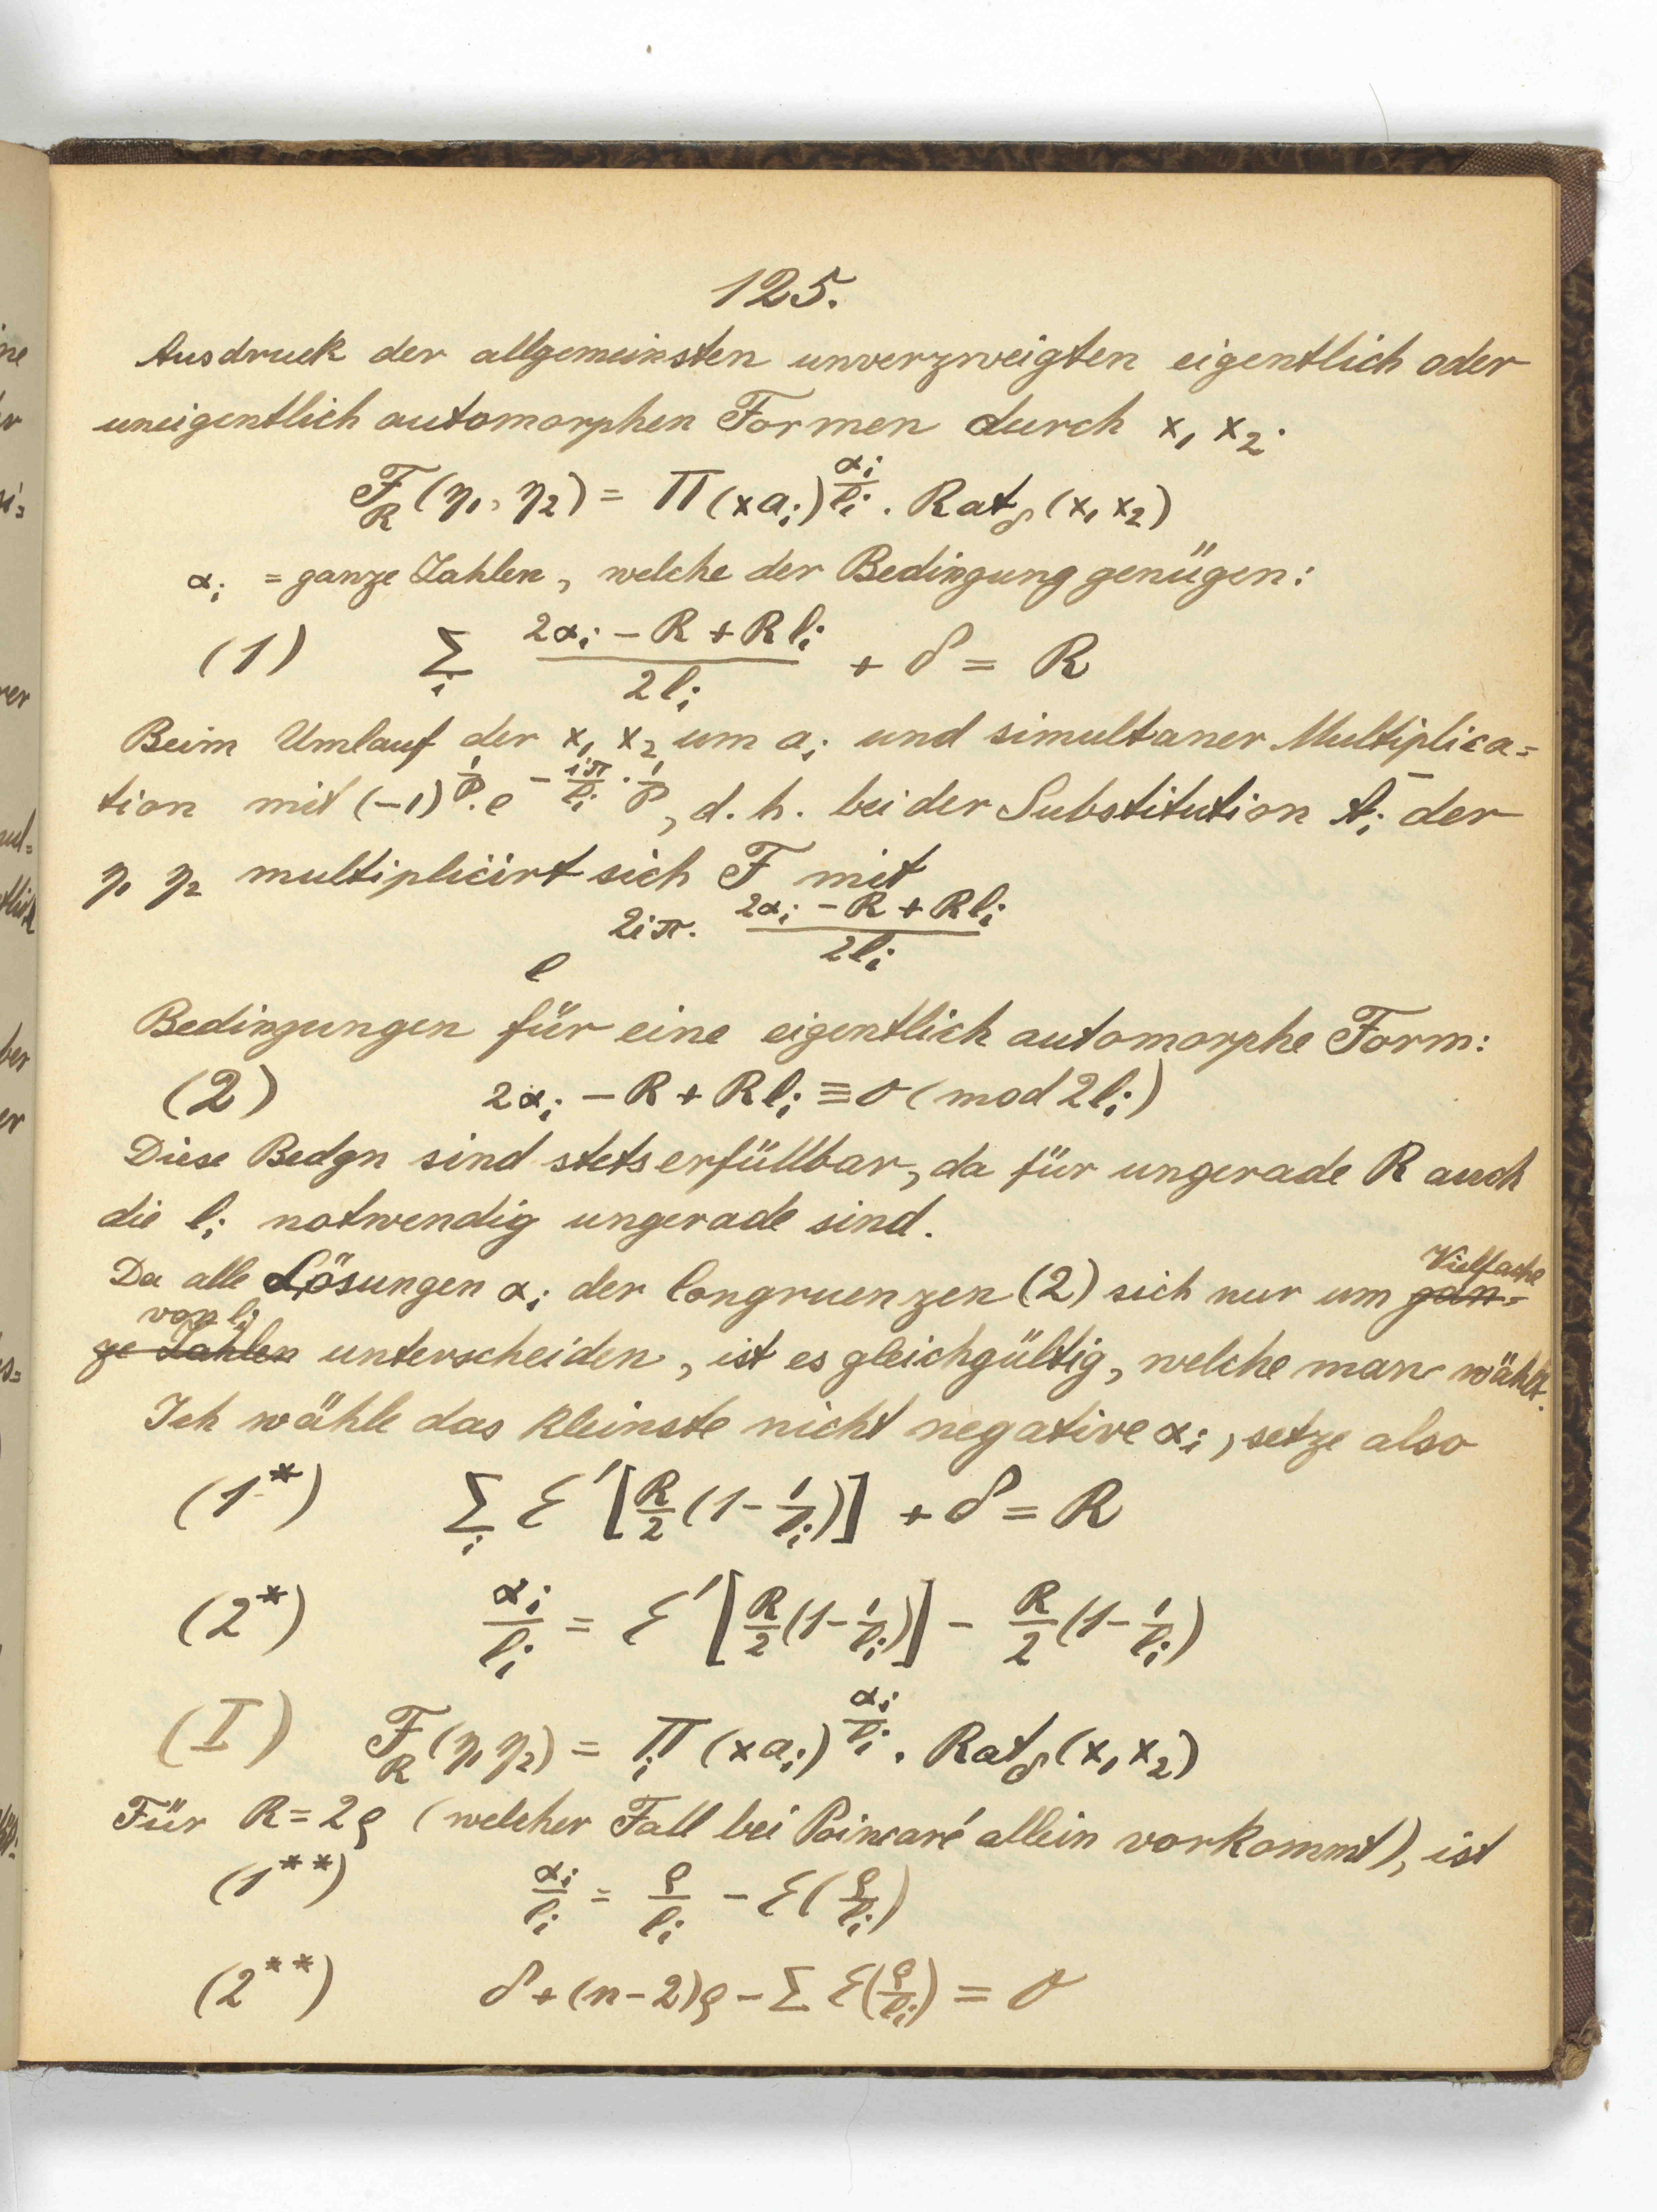 125.
Ausdruck der allgemeinsten unverzweigten eigentlich oder
uneigentlich automorphen Formen durch x₁ x₂.
F_R (η₁, η₂) = Π (x a_i)^{α_i/l_i} . Rat_δ (x₁ x₂)
α_i = ganze Zahlen, welche der Bedingung genügen:
(1) Σ_i (2α_i − R + R l_i)/(2 l_i) + δ = R
Beim Umlauf der x₁ x₂ um a_i und simultaner Multiplica=
tion mit (−1)^{1/p} . e^{− iπ/l_i · 1/p}, d. h. bei der Substitution t_i der
η₁ η₂ multiplicirt sich F mit
e^{2iπ . (2α_i − R + R l_i)/(2 l_i)}
Bedingungen für eine eigentlich automorphe Form:
(2) 2α_i − R + R l_i ≡ 0 (mod 2 l_i)
Diese Bedgn sind stets erfüllbar, da für ungerade R auch
die l_i notwendig ungerade sind.
Da alle Lösungen α_i der Congruenzen (2) sich nur um gan= Vielfache
ge Zahlen von l_i unterscheiden, ist es gleichgültig, welche man wählt.
Ich wähle das kleinste nicht negative α_i, setze also
(1*) Σ_i ℰ′ [R/2 (1 − 1/l_i)] + δ = R
(2*) α_i/l_i = ℰ′ [R/2 (1 − 1/l_i)] − R/2 (1 − 1/l_i)
(I) F_R (η₁ η₂) = Π_i (x a_i)^{α_i/l_i} . Rat_δ (x₁ x₂)
Für R = 2ϱ (welcher Fall bei Poincaré allein vorkommt), ist
(1**) α_i/l_i = ϱ/l_i − ℰ(ϱ/l_i)
(2**) δ + (n − 2)ϱ − Σ ℰ(ϱ/l_i) = 0